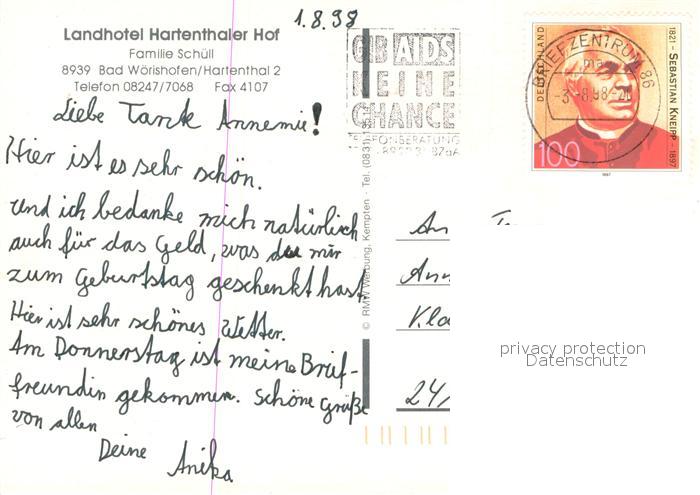 1.8.98
Landhotel Hartenthaler Hof
Familie Schüll
8939 Bad Wörishofen/Hartenthal 2
Telefon 08247/7068 Fax 4107
Liebe Tante Annemie!
Hier ist es sehr schön.
und ich bedanke mich natürlich
auch für das Geld, was du mir
zum Geburtstag geschenkt hast.
Hier ist sehr schönes Wetter.
Am Donnerstag ist meine Brief-
freundin gekommen. Schöne Grüße
von allen
Deine Anika
© RMW Werbung, Kempten · Tel. (0831)
GIB AIDS
KEINE
CHANCE
TELEFONBERATUNG
BRIEFZENTRUM 86
ma
-3.-8.98-21
DEUTSCHLAND
1821 - SEBASTIAN KNEIPP - 1897
100
1997
An
Ann
Kla
24
privacy protection
Datenschutz